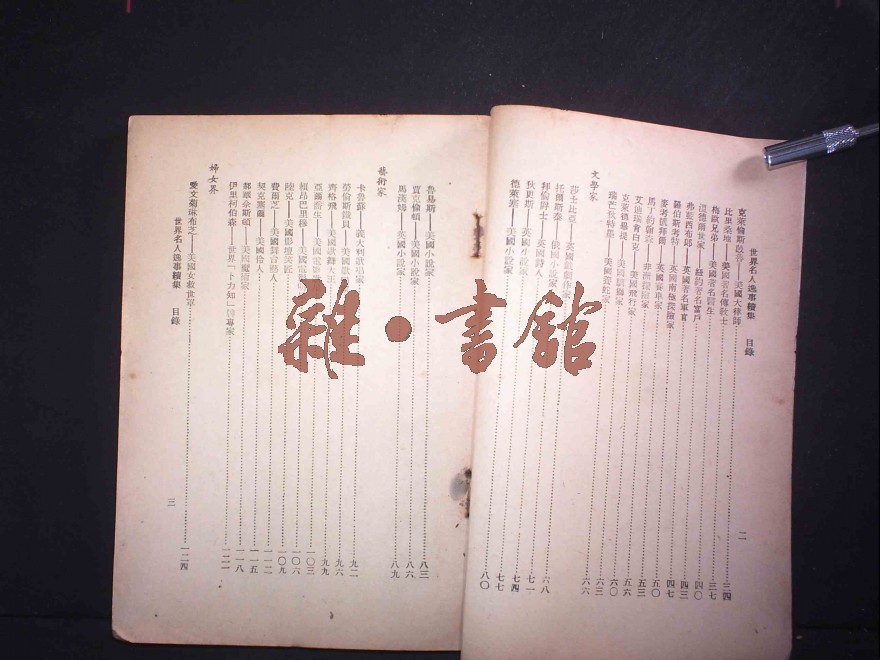 世界名人逸事續集 目錄
二
克萊倫斯 美國大律師 三四
比里桑地 美國著名傳教士 三七
梅歐兄弟——美國著名醫生 四〇
溫德爾世家 紐約著名富戶 四三
弗藍西布郎——英國著名軍官
羅伯斯考特——英國南極探險家 四七
麥考號邦爾 英國賽車家 五〇
馬丁約翰森——非洲探險家 五三
艾迪瑞肯白克——美國飛行家 五六
克萊德畢提——美國馴獸家 六〇
瑞芒狄特墨 美國養蛇家 六三
六六
文學家
莎士比亞——英國戲劇作家 六八
托爾斯泰——俄國小說家 七一
拜倫爵士——英國詩人 七四
狄更斯——英國小說家 七七
德萊塞——美國小說家 八〇
魯易斯——美國小說家 八三
賈克倫頓——美國小說家 八六
馬漢姆——英國小說家 八九
藝術家
卡魯蘇——義大利歌唱家 九二
勞倫斯鐵貝——美國歌 九六
齊格飛——美國歌舞大王 九九
亞爾喬生——美國電影 一〇三
賴昂巴里穆——美國電影 一〇六
陸克——美國影壇笑匠 一〇九
費爾芝——美國舞台藝人 一一二
契克塞爾——美國伶人 一一五
郝爾奈斯頓 美國魔術家 一一八
伊里柯伯森——世界「卜力知」牌專家 一二一
婦女界
愛文茄琳布芝——美國女救世軍 一二四
世界名人逸事續集 目錄
三
雜·書館